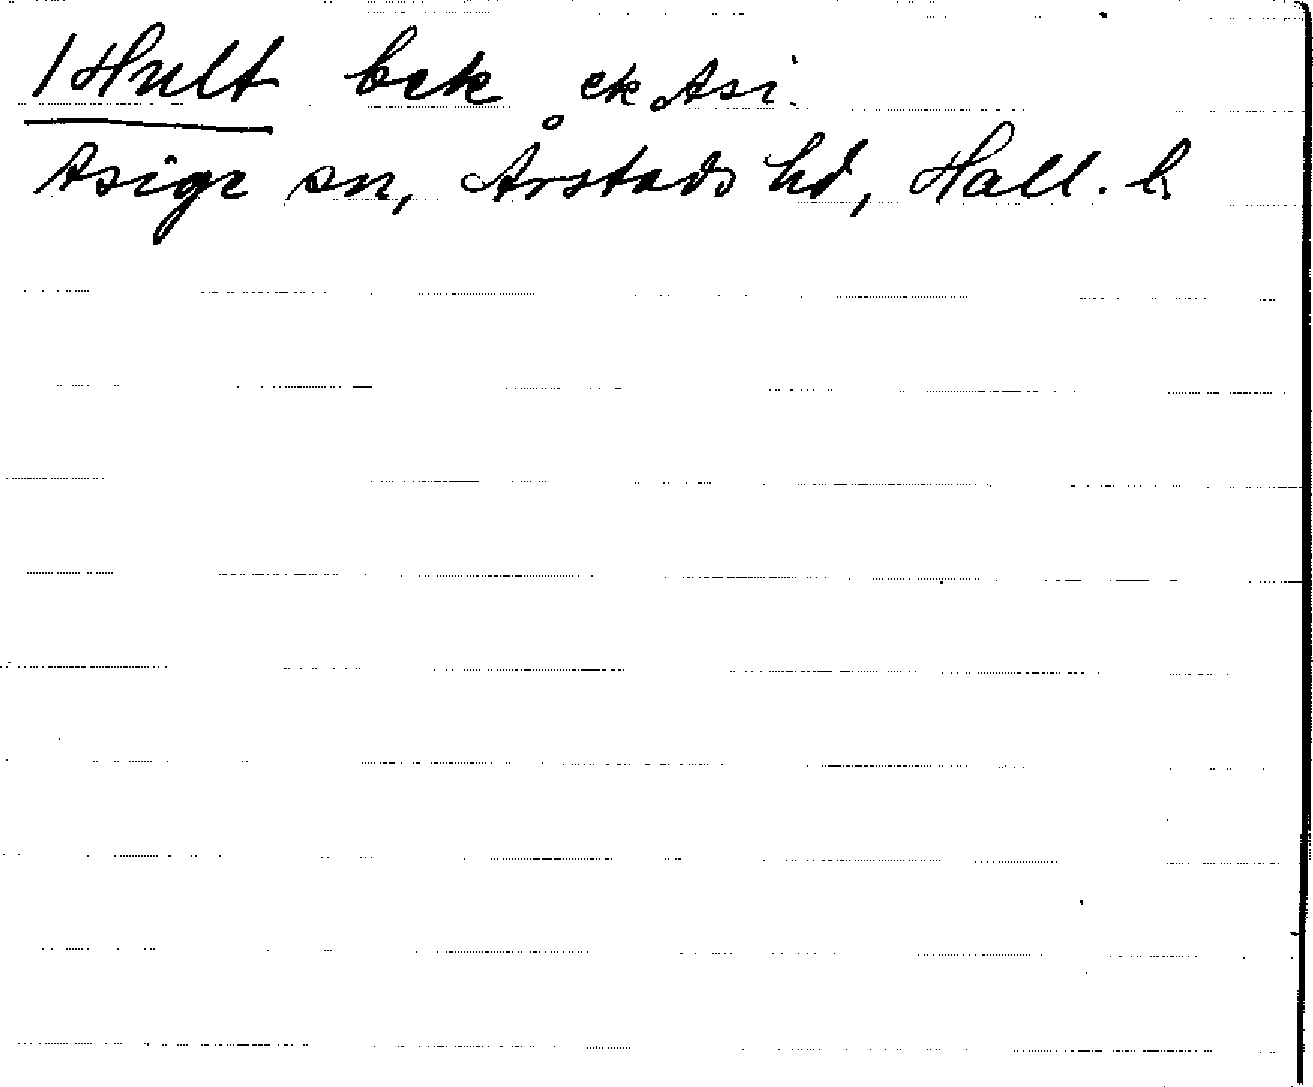 /Hult bek ek Asi.
Asige sn, Årstads hd, Hall. l.